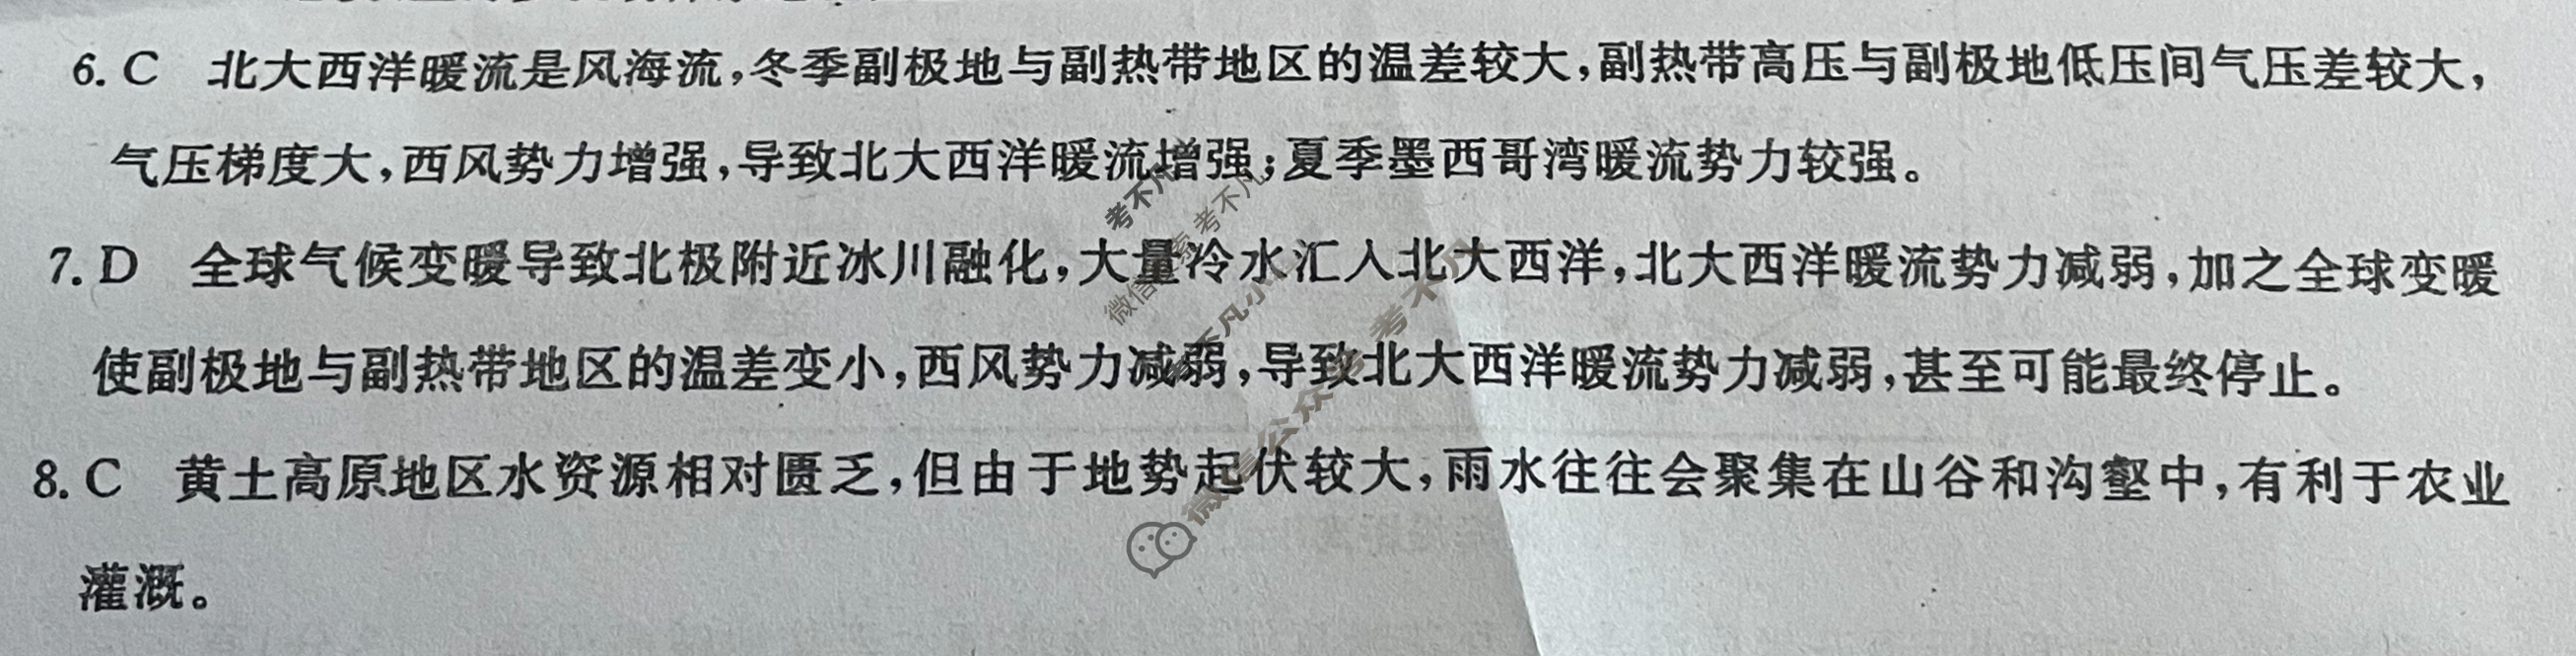 6. C 北大西洋暖流是风海流,冬季副极地与副热带地区的温差较大,副热带高压与副极地低压间气压差较大,
气压梯度大,西风势力增强,导致北大西洋暖流增强;夏季墨西哥湾暖流势力较强。
7. D 全球气候变暖导致北极附近冰川融化,大量冷水汇入北大西洋,北大西洋暖流势力减弱,加之全球变暖
使副极地与副热带地区的温差变小,西风势力减弱,导致北大西洋暖流势力减弱,甚至可能最终停止。
8. C 黄土高原地区水资源相对匮乏,但由于地势起伏较大,雨水往往会聚集在山谷和沟壑中,有利于农业
灌溉。